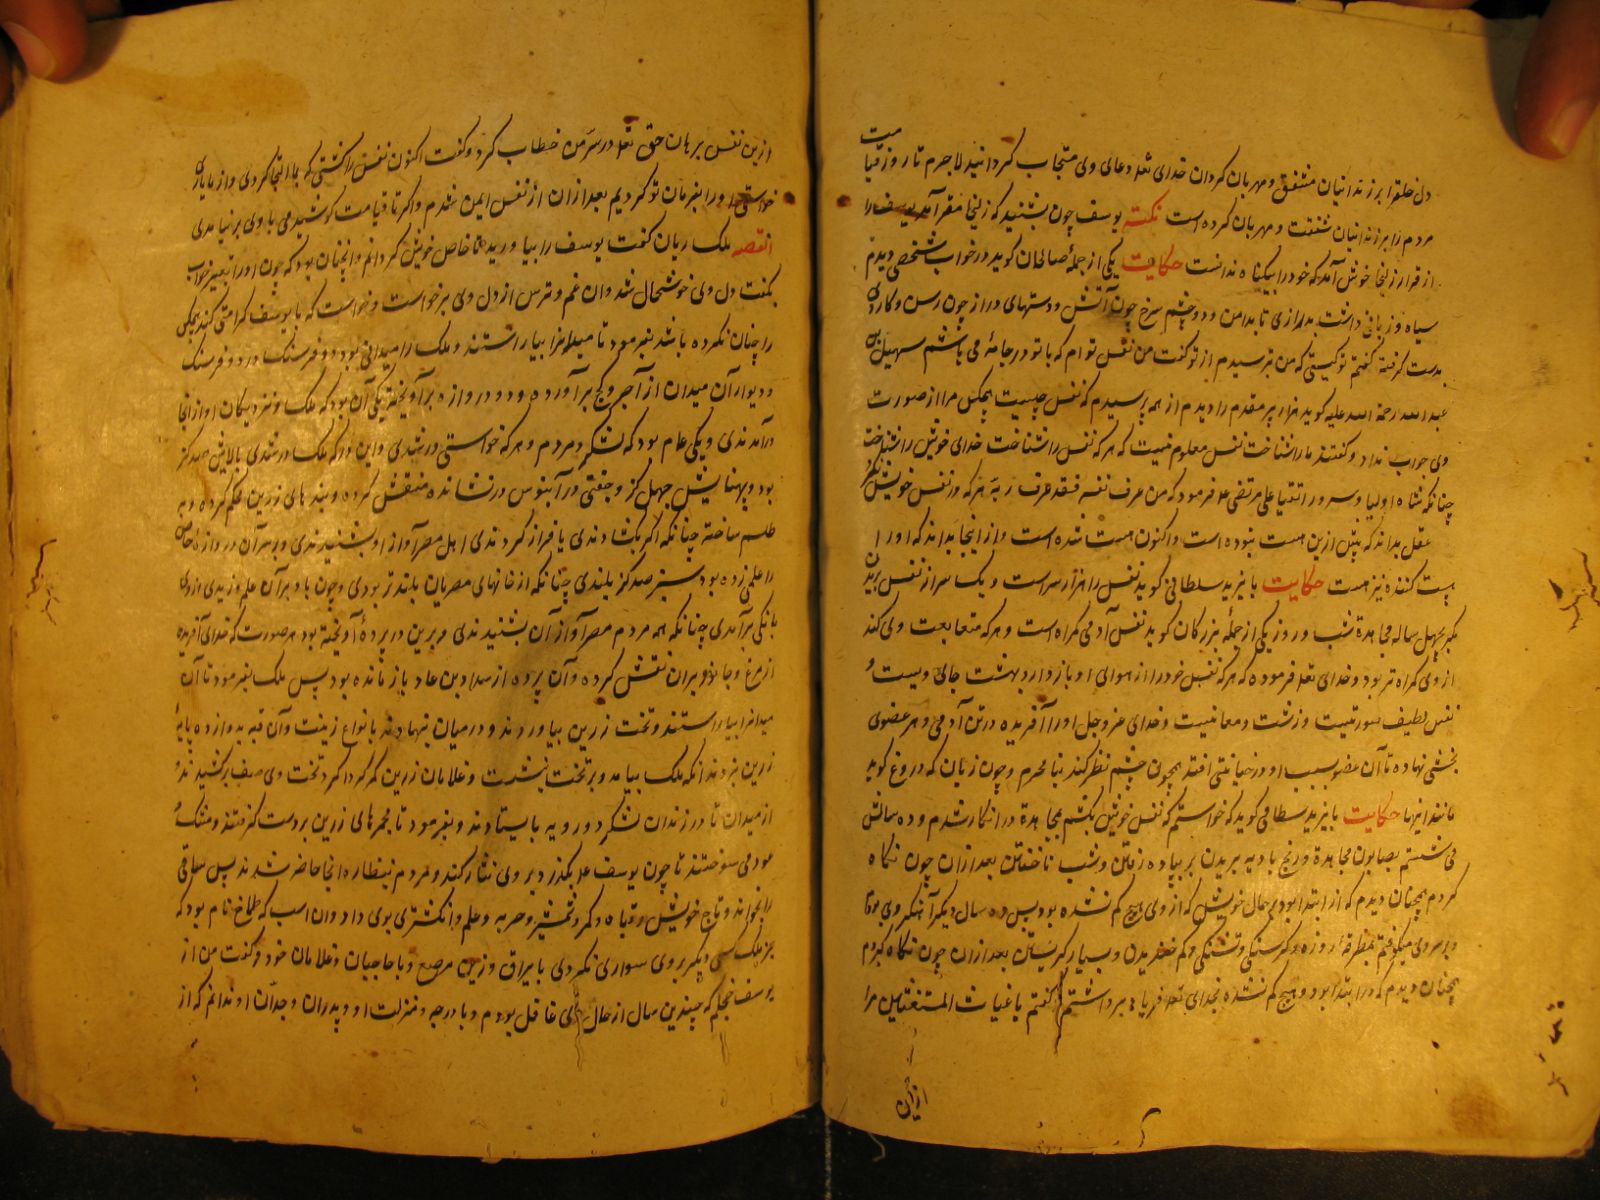 دل خلق را بر زندانیان مشفق و مهربان کردان خدای تعه دعای وی مستجاب کردانید لاجرم تا روز قیامت
مردم را بر زندانیان شفقت و مهربان کرده است نکته یوسف چون بشنید که زلیخا مقر آمد یوسف را
از قرار زلیخا خوش آمد که خود را بیکناه ندانست حکایت یکی از جملهٔ صالحان کوید در خواب شخصی دیدم
سیاه و زبانی داشت بدرازی تا بدامن و دو چشم سرخ چون آتش و دستهای دراز چون رسن و کاردی
بدست کرفته کفتم تو کیستی که من بترسیدم از تو کفت من نفس توام که با تو در جامهٔ می باشم سهیل بن
عبدالله رحمة الله علیه کوید هزار پیر مقدم را دیدم از همه پرسیدم که نفس چیست هیچکس مرا از صورت
وی جواب نداد و کفتند ما را شناخت نفس معلوم نیست که هر که نفس را شناخت خدای خویش را شناخت
چنانکه شاه اولیا و سرور اتقیا علی مرتضی ع فرمود که من عرف نفسه فقد عرف ربه هر که در نفس خویش نکرد
عقل بداند که پیش ازین هست نبوده است و اکنون هست شده است و از اینجا بداند که او را
هست کننده نیز هست حکایت بایزید بسطامی کوید نفس را هزار سر است و یک سر از نفس آن نبرند
مکر بچهل ساله مجاهدهٔ شب و روز یکی از جملهٔ بزرکان کوید نفس آدمی کمراه است و هر که متابعت وی کند
از وی کمراه تر بود و خدای تعه فرموده که هر که نفس خود را از هوای او باز دارد بهشت جای ویست و
نفس لطیف صورتیست و زشت و معانیست و خدای عز و جل او را آفریده در تن آدمی و هر عضوی
بخشی نهاده تا آن عضو بسبب او در خیانتی افتد همچون چشم نظر کند بنا محرم و چون زبان که دروغ کوید
مانند اینها حکایت بایزید بسطامی کوید که خواستم که نفس خویش بکشم بمجاهده در انکار شدم و ده سالش
می شستم بصابون مجاهده و رنج بادیه بریدن بر پیاده رفتن و شب نا خفتن بعد از آن چون نکاه
کردم همچنان دیدم که از ابتدا بود بر حال خویش که از وی هیچ کم نشده بود پس ده سال دیکر آهنکر وی بودم
و بر سر وی میکوفتم بمطرقهٔ روزه و کرسنکی و تشنکی و کم خفتیدن و بسیار کریستن بعد از آن چون نکاه کردم
همچنان دیدم که در ابتدا بود و هیچ کم نشده بخدای تعه فریاد برداشتم کفتم یا غیاث المستغیثین مرا
ازین
ازین نفس برهان حق تعه در سر من خطاب کرد و کفت اکنون نفس را کشتی که بما التجا کردی و از ما یاری
خواستی او را بفرمان تو کردیم بعد از آن از نفس ایمن شدم و اکر تا قیامت کوشیدمی با وی بر نیامدی
القصه ملک ریان کفت یوسف را بیاورید تا خاص خویش کردانم و انچنان بود که چون او را تعبیر خواب
بکفت دل وی خوشحال شد و آن غم و ترس از دل وی برخواست و خواست که با یوسف کرامتی کند که هیچکس
را چنان نکرده باشد بفرمود تا میدانرا بیاراستند و ملک را میدانی بود دو فرسنک در دو فرسنک
و دیوار آن میدان از آجر و کچ برآورده و دو دروازه برآویخته یکی آن بود که ملک و نزدیکان او از انجا
درآمدندی و یکی عام بود که لشکر و مردم و هر که خواستی در شدی و این در که ملک در شدی بالایش صد کز
بود و پهنایش چهل کز و جفتی در آبنوس در نشانده منقش کرده و بندهای زرین محکم کرده و بر
طلسم ساخته چنانکه اکر بکشادندی یا فراز کردندی اهل مصر آواز او بشنیدندی و بر سر آن دروازه خاص
را علمی زده بود سبز صد کز بلندی چنانکه از خانهای مصریان بلندتر بودی و چون باد بر آن علم وزیدی ازوی
بانکی برآمدی چنانکه همه مردم مصر آواز آن بشنیدندی و برین در پردهٔ آویخته بود هر صورت که خدای آفریده
از مرغ و جانور بر آن نقش کرده و آن پرده از شداد بن عاد باز مانده بود پس ملک بفرمود تا آن
میدانرا بیاراستند و تخت زرین بیاوردند و در میان بنهادند بانواع زینت و آن قبه بدوازده پایهٔ
زرین بزدند آنکه ملک بیامد و بر تخت بنشست و غلامان زرین کمر کرداکرد تخت وی صف برکشیدند و
از میدان تا در زندان لشکر دو رویه بایستادند و بفرمود تا مجمرهای زرین بر دست کرفتند و مشک و
عود می سوختند تا چون یوسف ع بکذرد بر وی نثار کنند و مردم بنظاره انجا حاضر شدند پس ساقی
را بخواند و تاج خویش و قباه و کمر و شمشیر و حربه و علم و انکشتری بوی داد و آن اسب که طماخ نام بود که
بجز ملک کسی دیکر بر وی سواری نکردی با یراق و زین مرصع و با حاجبان و غلامان خود و کفت من از
یوسف خجلم که چندین سال از حال وی غافل بودم و با درجه و منزلت او و پدران و جدان او ندانم که از